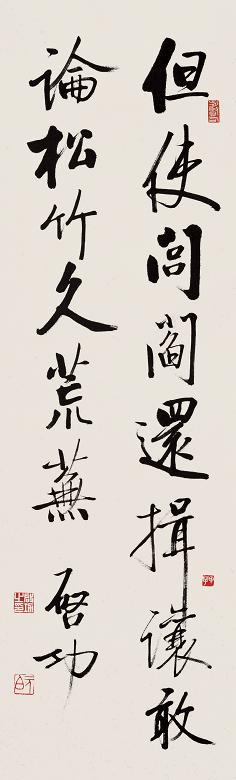 但使閭閻還揖讓敢
論松竹久荒蕪
啓功